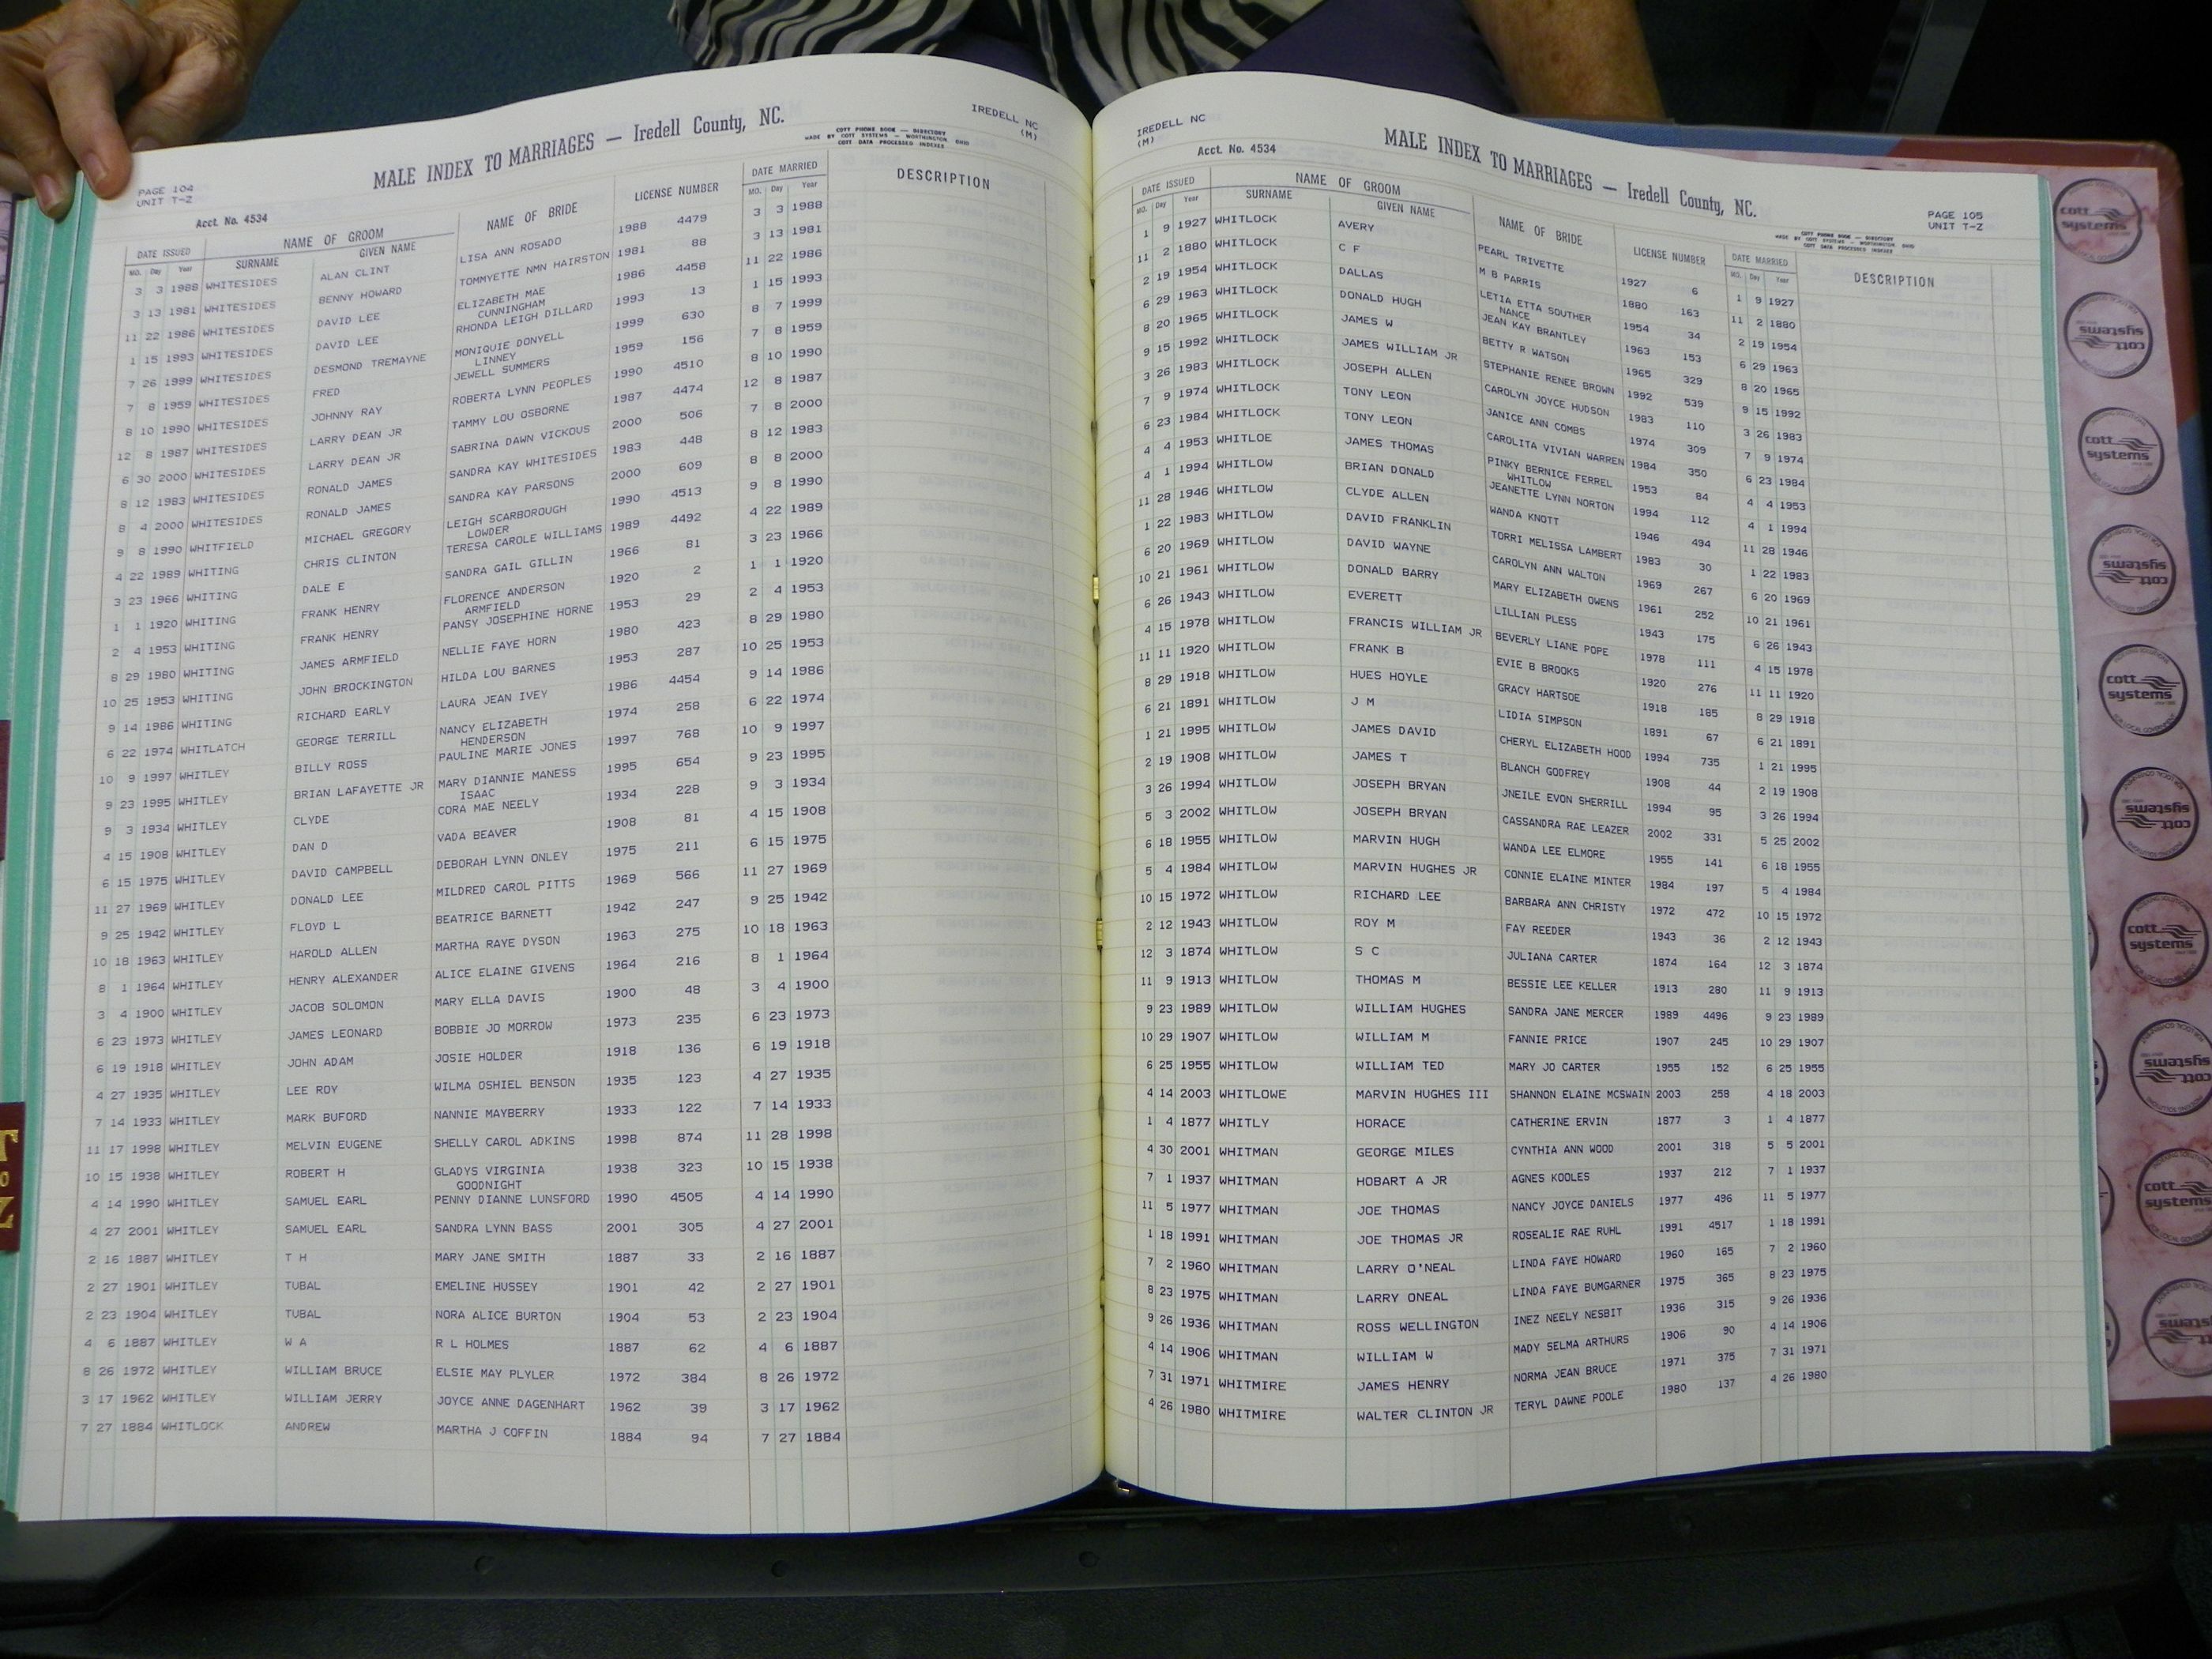 MALE INDEX TO MARRIAGES — Iredell County, NC.
IREDELL NC
(M)
COTT PHONE BOOK — DIRECTORY
MADE BY COTT SYSTEMS — WORTHINGTON OHIO
COTT DATA PROCESSED INDEXES
PAGE 104
UNIT T-Z
Acct. No. 4534
DATE ISSUED NAME OF GROOM NAME OF BRIDE LICENSE NUMBER DATE MARRIED DESCRIPTION
MO. Day Year SURNAME GIVEN NAME MO. Day Year
3 3 1988 WHITESIDES ALAN CLINT LISA ANN ROSADO 1988 4479 3 3 1988
3 13 1981 WHITESIDES BENNY HOWARD TOMMYETTE NMN HAIRSTON 1981 88 3 13 1981
11 22 1986 WHITESIDES DAVID LEE ELIZABETH MAE 1986 4458 11 22 1986
CUNNINGHAM
1 15 1993 WHITESIDES DAVID LEE RHONDA LEIGH DILLARD 1993 13 1 15 1993
7 26 1999 WHITESIDES DESMOND TREMAYNE MONIQUIE DONYELL 1999 630 8 7 1999
LINNEY
7 8 1959 WHITESIDES FRED JEWELL SUMMERS 1959 156 7 8 1959
8 10 1990 WHITESIDES JOHNNY RAY ROBERTA LYNN PEOPLES 1990 4510 8 10 1990
12 8 1987 WHITESIDES LARRY DEAN JR TAMMY LOU OSBORNE 1987 4474 12 8 1987
6 30 2000 WHITESIDES LARRY DEAN JR SABRINA DAWN VICKOUS 2000 506 7 8 2000
8 12 1983 WHITESIDES RONALD JAMES SANDRA KAY WHITESIDES 1983 448 8 12 1983
8 4 2000 WHITESIDES RONALD JAMES SANDRA KAY PARSONS 2000 609 8 8 2000
9 8 1990 WHITFIELD MICHAEL GREGORY LEIGH SCARBOROUGH 1990 4513 9 8 1990
LOWDER
4 22 1989 WHITING CHRIS CLINTON TERESA CAROLE WILLIAMS 1989 4492 4 22 1989
3 23 1966 WHITING DALE E SANDRA GAIL GILLIN 1966 81 3 23 1966
1 1 1920 WHITING FRANK HENRY FLORENCE ANDERSON 1920 2 1 1 1920
ARMFIELD
2 4 1953 WHITING FRANK HENRY PANSY JOSEPHINE HORNE 1953 29 2 4 1953
8 29 1980 WHITING JAMES ARMFIELD NELLIE FAYE HORN 1980 423 8 29 1980
10 25 1953 WHITING JOHN BROCKINGTON HILDA LOU BARNES 1953 287 10 25 1953
9 14 1986 WHITING RICHARD EARLY LAURA JEAN IVEY 1986 4454 9 14 1986
6 22 1974 WHITLATCH GEORGE TERRILL NANCY ELIZABETH 1974 258 6 22 1974
HENDERSON
10 9 1997 WHITLEY BILLY ROSS PAULINE MARIE JONES 1997 768 10 9 1997
9 23 1995 WHITLEY BRIAN LAFAYETTE JR MARY DIANNIE MANESS 1995 654 9 23 1995
ISAAC
9 3 1934 WHITLEY CLYDE CORA MAE NEELY 1934 228 9 3 1934
4 15 1908 WHITLEY DAN D VADA BEAVER 1908 81 4 15 1908
6 15 1975 WHITLEY DAVID CAMPBELL DEBORAH LYNN ONLEY 1975 211 6 15 1975
11 27 1969 WHITLEY DONALD LEE MILDRED CAROL PITTS 1969 566 11 27 1969
9 25 1942 WHITLEY FLOYD L BEATRICE BARNETT 1942 247 9 25 1942
10 18 1963 WHITLEY HAROLD ALLEN MARTHA RAYE DYSON 1963 275 10 18 1963
8 1 1964 WHITLEY HENRY ALEXANDER ALICE ELAINE GIVENS 1964 216 8 1 1964
3 4 1900 WHITLEY JACOB SOLOMON MARY ELLA DAVIS 1900 48 3 4 1900
6 23 1973 WHITLEY JAMES LEONARD BOBBIE JO MORROW 1973 235 6 23 1973
6 19 1918 WHITLEY JOHN ADAM JOSIE HOLDER 1918 136 6 19 1918
4 27 1935 WHITLEY LEE ROY WILMA OSHIEL BENSON 1935 123 4 27 1935
7 14 1933 WHITLEY MARK BUFORD NANNIE MAYBERRY 1933 122 7 14 1933
11 17 1998 WHITLEY MELVIN EUGENE SHELLY CAROL ADKINS 1998 874 11 28 1998
10 15 1938 WHITLEY ROBERT H GLADYS VIRGINIA 1938 323 10 15 1938
GOODNIGHT
4 14 1990 WHITLEY SAMUEL EARL PENNY DIANNE LUNSFORD 1990 4505 4 14 1990
4 27 2001 WHITLEY SAMUEL EARL SANDRA LYNN BASS 2001 305 4 27 2001
2 16 1887 WHITLEY T H MARY JANE SMITH 1887 33 2 16 1887
2 27 1901 WHITLEY TUBAL EMELINE HUSSEY 1901 42 2 27 1901
2 23 1904 WHITLEY TUBAL NORA ALICE BURTON 1904 53 2 23 1904
4 6 1887 WHITLEY W A R L HOLMES 1887 62 4 6 1887
8 26 1972 WHITLEY WILLIAM BRUCE ELSIE MAY PLYLER 1972 384 8 26 1972
3 17 1962 WHITLEY WILLIAM JERRY JOYCE ANNE DAGENHART 1962 39 3 17 1962
7 27 1884 WHITLOCK ANDREW MARTHA J COFFIN 1884 94 7 27 1884
IREDELL NC
(M)
Acct. No. 4534
MALE INDEX TO MARRIAGES — Iredell County, NC.
COTT PHONE BOOK — DIRECTORY
MADE BY COTT SYSTEMS — WORTHINGTON OHIO
COTT DATA PROCESSED INDEXES
PAGE 105
UNIT T-Z
DATE ISSUED NAME OF GROOM NAME OF BRIDE LICENSE NUMBER DATE MARRIED DESCRIPTION
MO. Day Year SURNAME GIVEN NAME MO. Day Year
1 9 1927 WHITLOCK AVERY PEARL TRIVETTE 1927 6 1 9 1927
11 2 1880 WHITLOCK C F M B PARRIS 1880 163 11 2 1880
2 19 1954 WHITLOCK DALLAS LETIA ETTA SOUTHER 1954 34 2 19 1954
NANCE
6 29 1963 WHITLOCK DONALD HUGH JEAN KAY BRANTLEY 1963 153 6 29 1963
8 20 1965 WHITLOCK JAMES W BETTY R WATSON 1965 329 8 20 1965
9 15 1992 WHITLOCK JAMES WILLIAM JR STEPHANIE RENEE BROWN 1992 539 9 15 1992
3 26 1983 WHITLOCK JOSEPH ALLEN CAROLYN JOYCE HUDSON 1983 110 3 26 1983
7 9 1974 WHITLOCK TONY LEON JANICE ANN COMBS 1974 309 7 9 1974
6 23 1984 WHITLOCK TONY LEON CAROLITA VIVIAN WARREN 1984 350 6 23 1984
4 4 1953 WHITLOE JAMES THOMAS PINKY BERNICE FERREL 1953 84 4 4 1953
WHITLOW
4 1 1994 WHITLOW BRIAN DONALD JEANETTE LYNN NORTON 1994 112 4 1 1994
11 28 1946 WHITLOW CLYDE ALLEN WANDA KNOTT 1946 494 11 28 1946
1 22 1983 WHITLOW DAVID FRANKLIN TORRI MELISSA LAMBERT 1983 30 1 22 1983
6 20 1969 WHITLOW DAVID WAYNE CAROLYN ANN WALTON 1969 267 6 20 1969
10 21 1961 WHITLOW DONALD BARRY MARY ELIZABETH OWENS 1961 252 10 21 1961
6 26 1943 WHITLOW EVERETT LILLIAN PLESS 1943 175 6 26 1943
4 15 1978 WHITLOW FRANCIS WILLIAM JR BEVERLY LIANE POPE 1978 111 4 15 1978
11 11 1920 WHITLOW FRANK B EVIE B BROOKS 1920 276 11 11 1920
8 29 1918 WHITLOW HUES HOYLE GRACY HARTSOE 1918 185 8 29 1918
6 21 1891 WHITLOW J M LIDIA SIMPSON 1891 67 6 21 1891
1 21 1995 WHITLOW JAMES DAVID CHERYL ELIZABETH HOOD 1994 735 1 21 1995
2 19 1908 WHITLOW JAMES T BLANCH GODFREY 1908 44 2 19 1908
3 26 1994 WHITLOW JOSEPH BRYAN JNEILE EVON SHERRILL 1994 95 3 26 1994
5 3 2002 WHITLOW JOSEPH BRYAN CASSANDRA RAE LEAZER 2002 331 5 25 2002
6 18 1955 WHITLOW MARVIN HUGH WANDA LEE ELMORE 1955 141 6 18 1955
5 4 1984 WHITLOW MARVIN HUGHES JR CONNIE ELAINE MINTER 1984 197 5 4 1984
10 15 1972 WHITLOW RICHARD LEE BARBARA ANN CHRISTY 1972 472 10 15 1972
2 12 1943 WHITLOW ROY M FAY REEDER 1943 36 2 12 1943
12 3 1874 WHITLOW S C JULIANA CARTER 1874 164 12 3 1874
11 9 1913 WHITLOW THOMAS M BESSIE LEE KELLER 1913 280 11 9 1913
9 23 1989 WHITLOW WILLIAM HUGHES SANDRA JANE MERCER 1989 4496 9 23 1989
10 29 1907 WHITLOW WILLIAM M FANNIE PRICE 1907 245 10 29 1907
6 25 1955 WHITLOW WILLIAM TED MARY JO CARTER 1955 152 6 25 1955
4 14 2003 WHITLOWE MARVIN HUGHES III SHANNON ELAINE MCSWAIN 2003 258 4 18 2003
1 4 1877 WHITLY HORACE CATHERINE ERVIN 1877 3 1 4 1877
4 30 2001 WHITMAN GEORGE MILES CYNTHIA ANN WOOD 2001 318 5 5 2001
7 1 1937 WHITMAN HOBART A JR AGNES KOOLES 1937 212 7 1 1937
11 5 1977 WHITMAN JOE THOMAS NANCY JOYCE DANIELS 1977 496 11 5 1977
1 18 1991 WHITMAN JOE THOMAS JR ROSEALIE RAE RUHL 1991 4517 1 18 1991
7 2 1960 WHITMAN LARRY O'NEAL LINDA FAYE HOWARD 1960 165 7 2 1960
8 23 1975 WHITMAN LARRY ONEAL LINDA FAYE BUMGARNER 1975 365 8 23 1975
9 26 1936 WHITMAN ROSS WELLINGTON INEZ NEELY NESBIT 1936 315 9 26 1936
4 14 1906 WHITMAN WILLIAM W MADY SELMA ARTHURS 1906 90 4 14 1906
7 31 1971 WHITMIRE JAMES HENRY NORMA JEAN BRUCE 1971 375 7 31 1971
4 26 1980 WHITMIRE WALTER CLINTON JR TERYL DAWNE POOLE 1980 137 4 26 1980
cott systems
cott systems
cott systems
cott systems
cott systems
cott systems
cott systems
cott systems
cott systems
cott systems
T
TO
Z